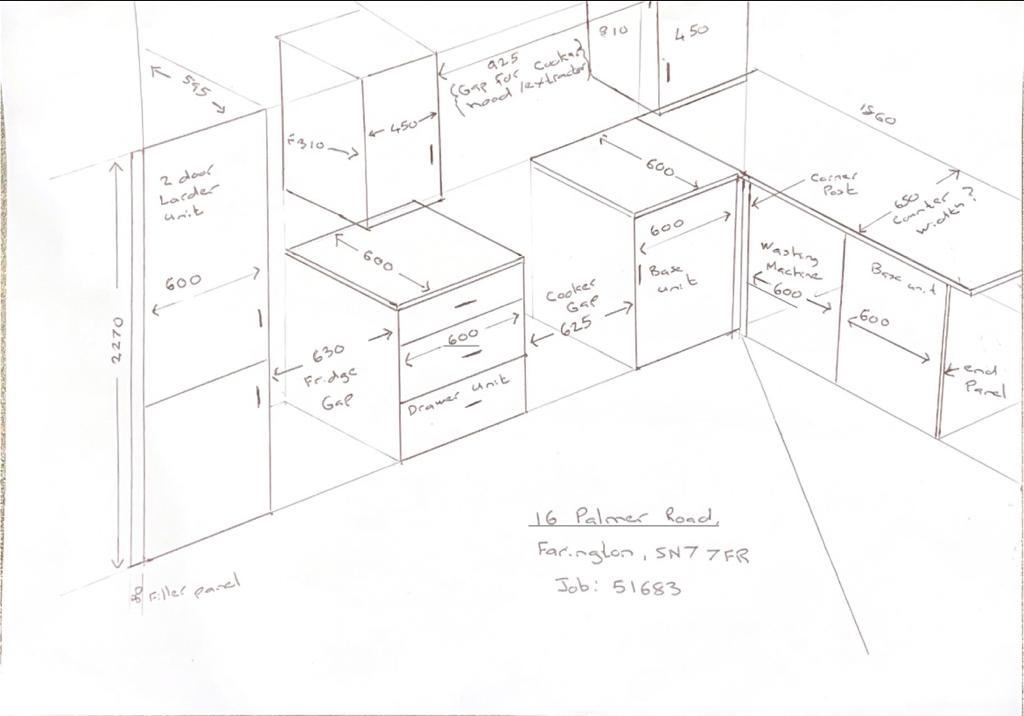 595
2 door
Larder
unit
600
2270
Filler panel
310
450
925
Gap for Cooker
hood/extractor
310
450
600
630
Fridge
Gap
600
Drawer unit
Cooker
Gap
625
600
600
Base
unit
Corner
Post
1560
650
Counter
width?
Washing
Machine
600
Base unit
600
end
Panel
16 Palmer Road,
Farington, SN7 7FR
Job: 51683